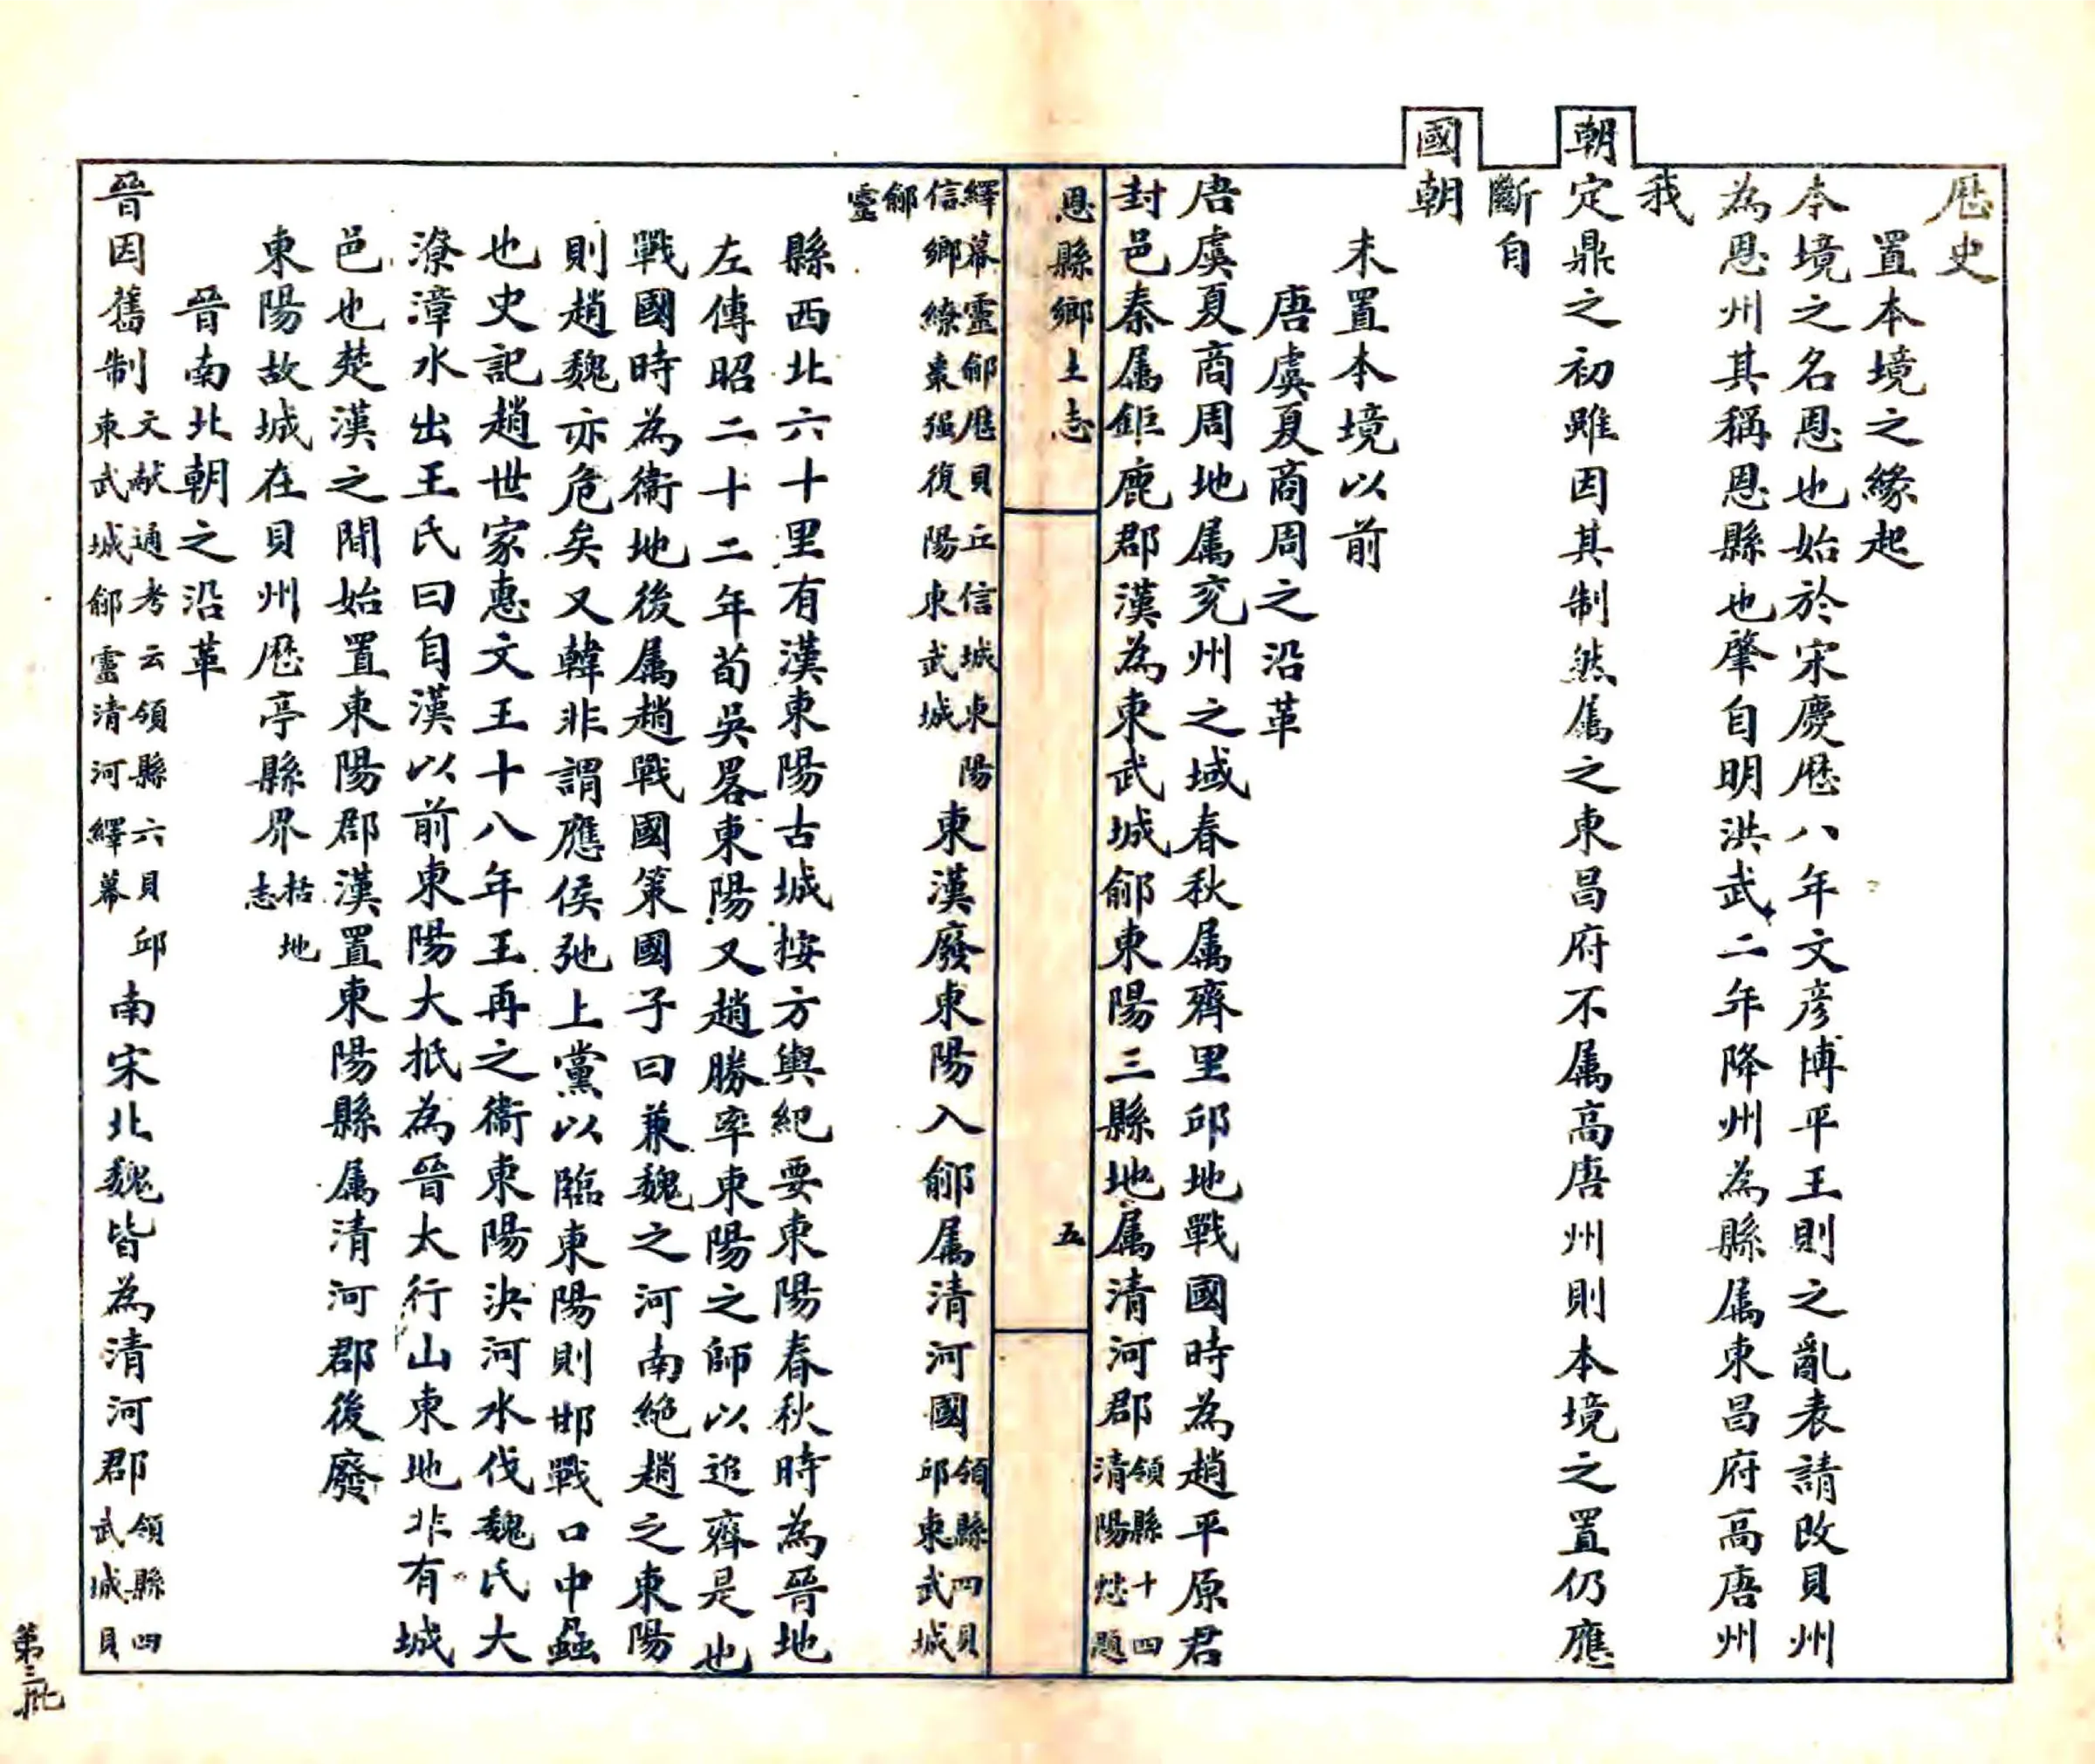 歷史
置本境之緣起
本境之名恩也始於宋慶歷八年文彥博平王則之亂表請改貝州
為恩州其稱恩縣也肇自明洪武二年降州為縣属東昌府高唐州
我
朝定鼎之初雖因其制然属之東昌府不属高唐州則本境之置仍應
斷自
國朝
未置本境以前
唐虞夏商周之沿革
唐虞夏商周地属兖州之域春秋属齊里邱地戰國時為趙平原君
封邑秦属鉅鹿郡漢為東武城鄃東陽三縣地属清河郡領縣十四
清陽㤅題
恩縣鄉土志
五
繹幕靈鄃厝貝丘信城東陽
信鄉繚棗强復陽東武城
東漢廢東陽入鄃属清河國領縣四貝
邱東武城
鄃
靈
縣西北六十里有漢東陽古城按方輿紀要東陽春秋時為晉地
左傳昭二十二年荀吳畧東陽又趙勝率東陽之師以追齊是也
戰國時為衞地後属趙戰國策國子曰兼魏之河南絶趙之東陽
則趙魏亦危矣又韓非謂應侯弛上黨以臨東陽則邯戰口中蝨
也史記趙世家惠文王十八年王再之衞東陽決河水伐魏氏大
潦漳水出王氏曰自漢以前東陽大抵為晉太行山東地非有城
邑也楚漢之間始置東陽郡漢置東陽縣属清河郡後廢
東陽故城在貝州歷亭縣界括地
志
晉南北朝之沿革
晉因舊制文献通考云領縣六貝邱
東武城鄃靈清河繹幕
南宋北魏皆為清河郡領縣四
武城貝
第三批